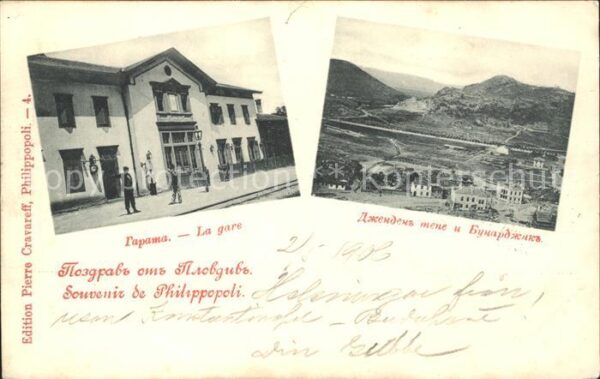 Edition Pierre Cravareff, Philippopoli. — 4.
Гарата. — La gare
Дженденъ тепе и Бунарджикъ.
Поздравъ отъ Пловдивъ.
Souvenir de Philippopoli.
Helsningar från
resan Konstantinopel – Budapest
din